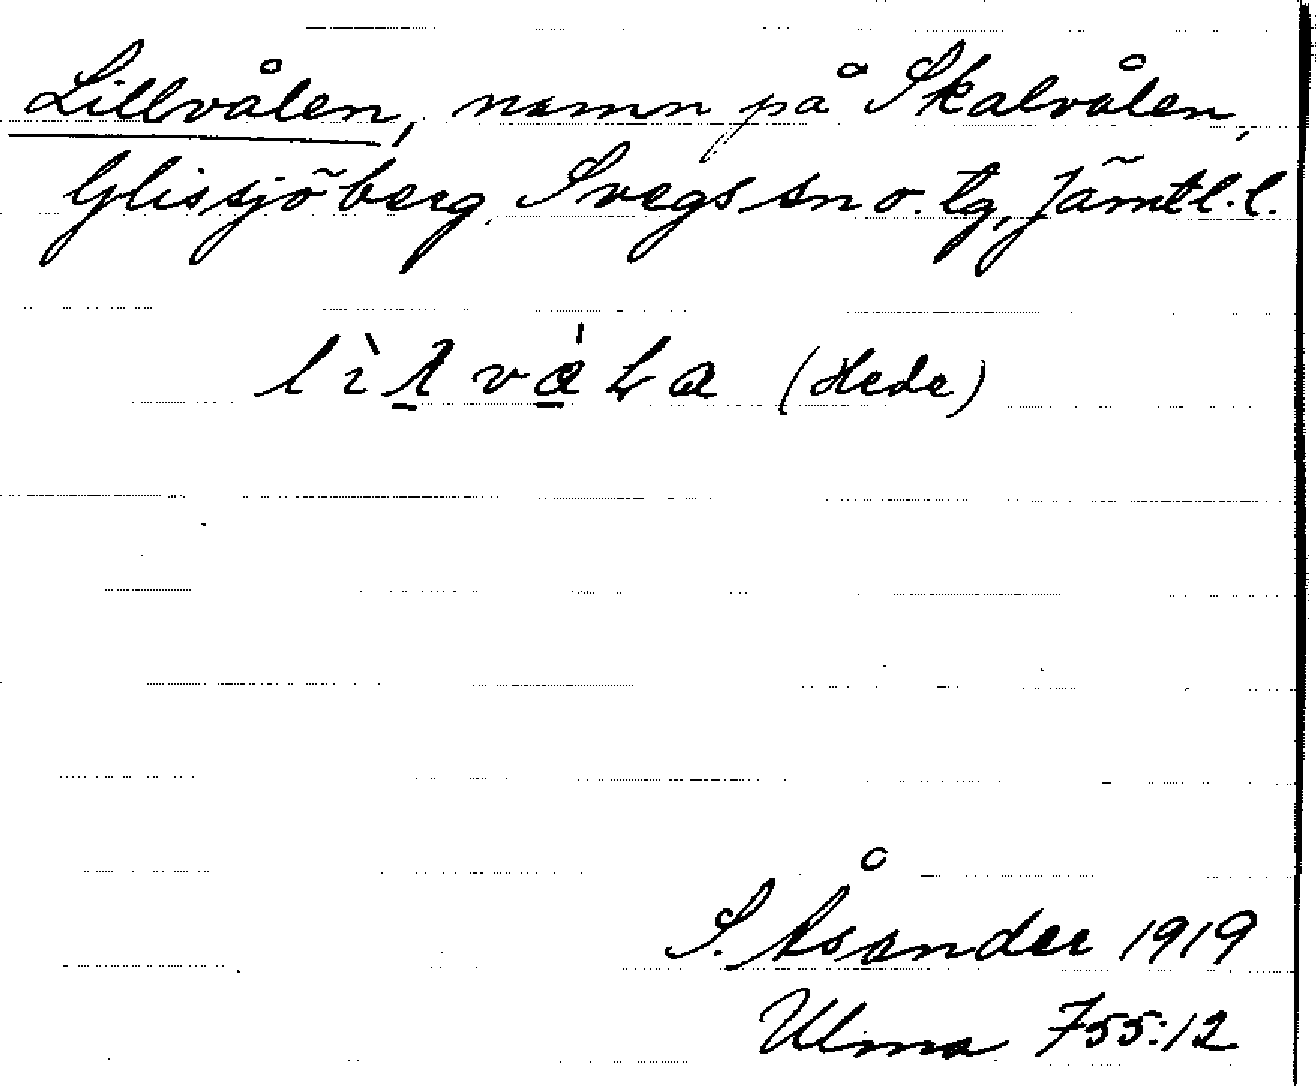 Lillvålen, namn på Skalvålen,
Glissjöberg, Svegs sn o. tg, Jämtl. l.
lìl̠va̠̍Ła (Hede)
S. Åsander 1919
Ulma 755:12